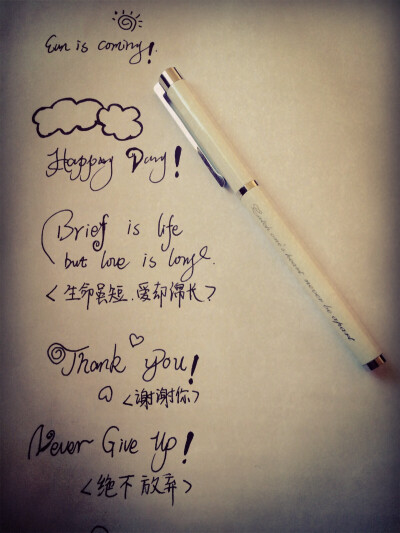 is coming!
Happy Day!
Brief is life
but love is long
<生命虽短,爱却绵长>
Thank you!
<谢谢你>
Never Give Up!
<绝不放弃>